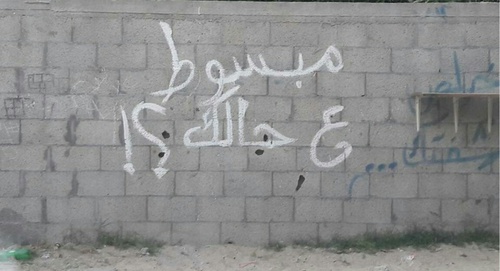 مبسوط
ع حالك ؟!